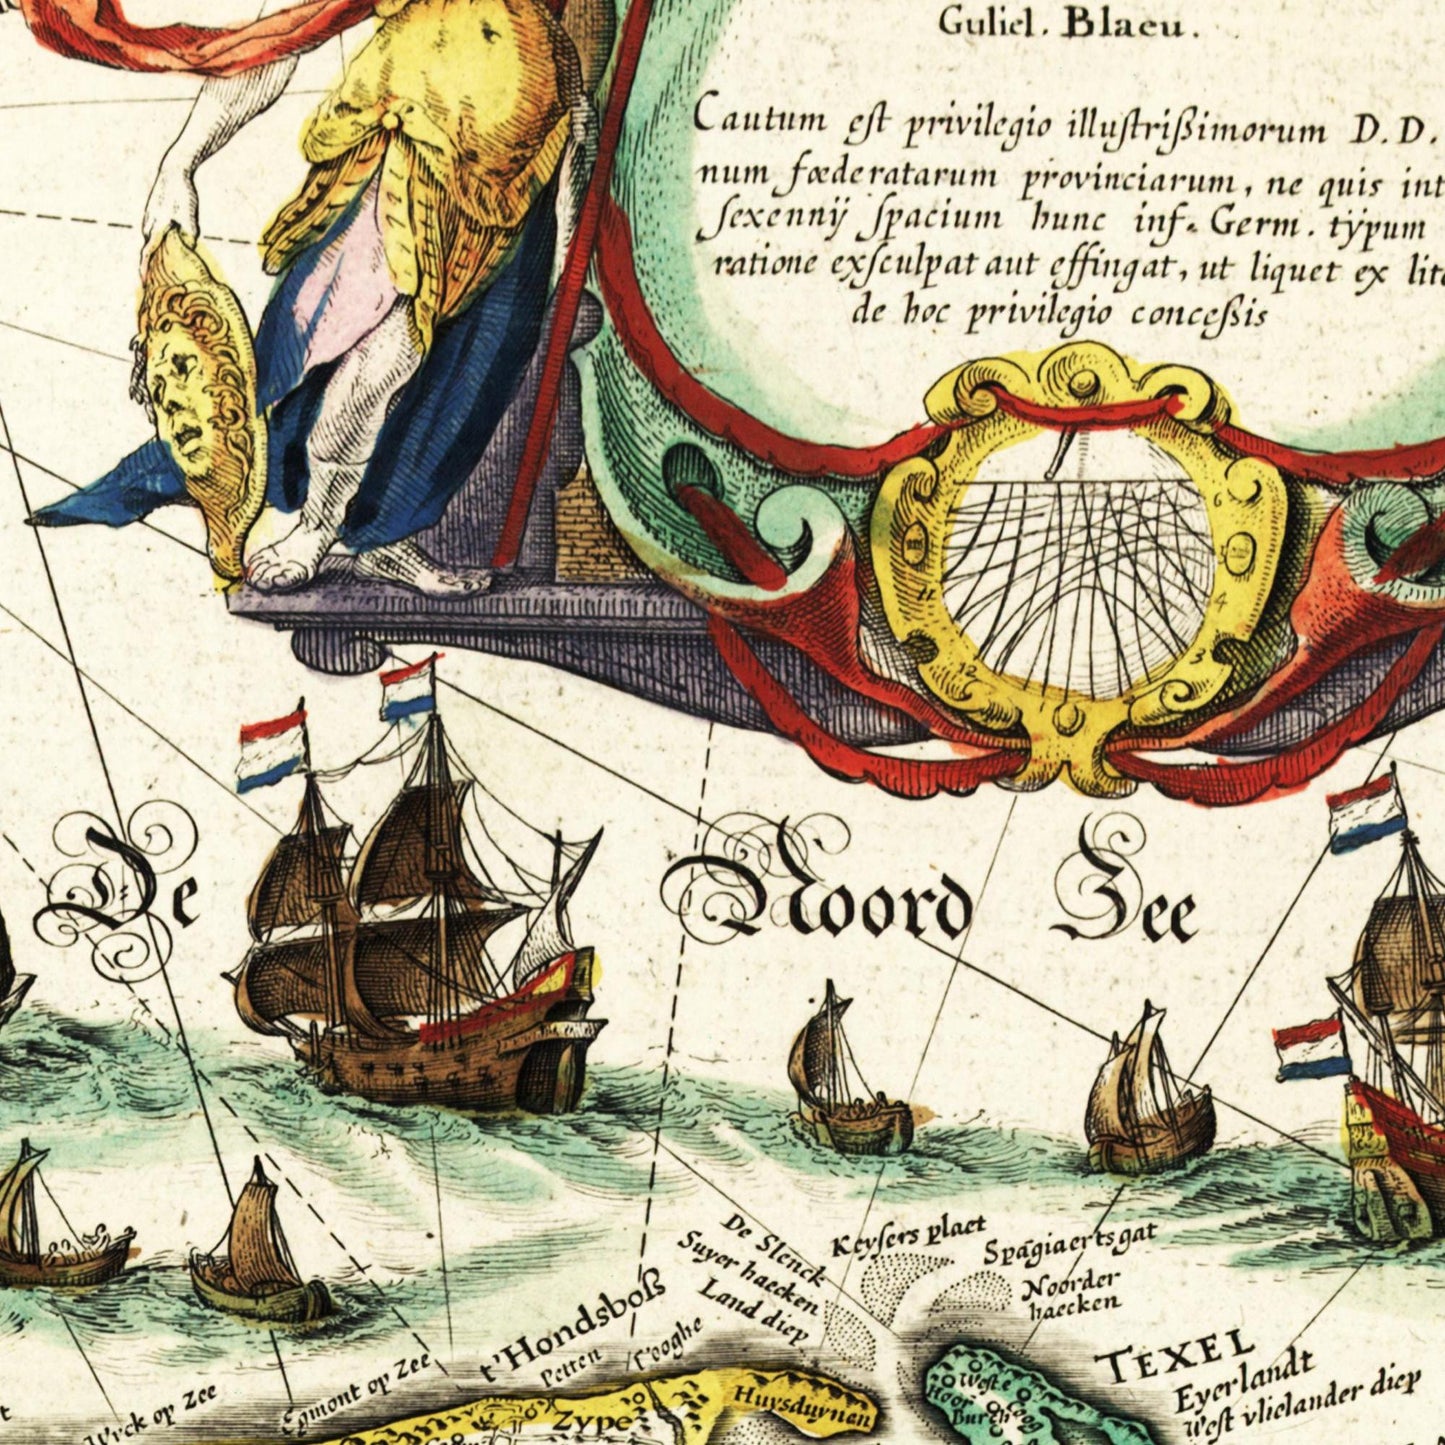 Guliel. Blaeu.
Cautum eſt privilegio illuſtriſsimorum D.D.
num fœderatarum provinciarum, ne quis int
ſexennÿ ſpacium hunc inf. Germ. tÿpum
ratione exſculpat aut effingat, ut liquet ex lite
de hoc privilegio conceſsis
6
4
3
11
12
1
De Noord Zee
De Slenck
Suyer haecken
Land diep
Keyſers plaet
Spāgiaertsgat
Noorder
haecken
t'Hondsboß
Petten
Egmont op Zee
Wyck op Zee
Zype
Huysduynen
TEXEL
Eyerlandt
Weſt vlielander diep
Hoorn
Burch